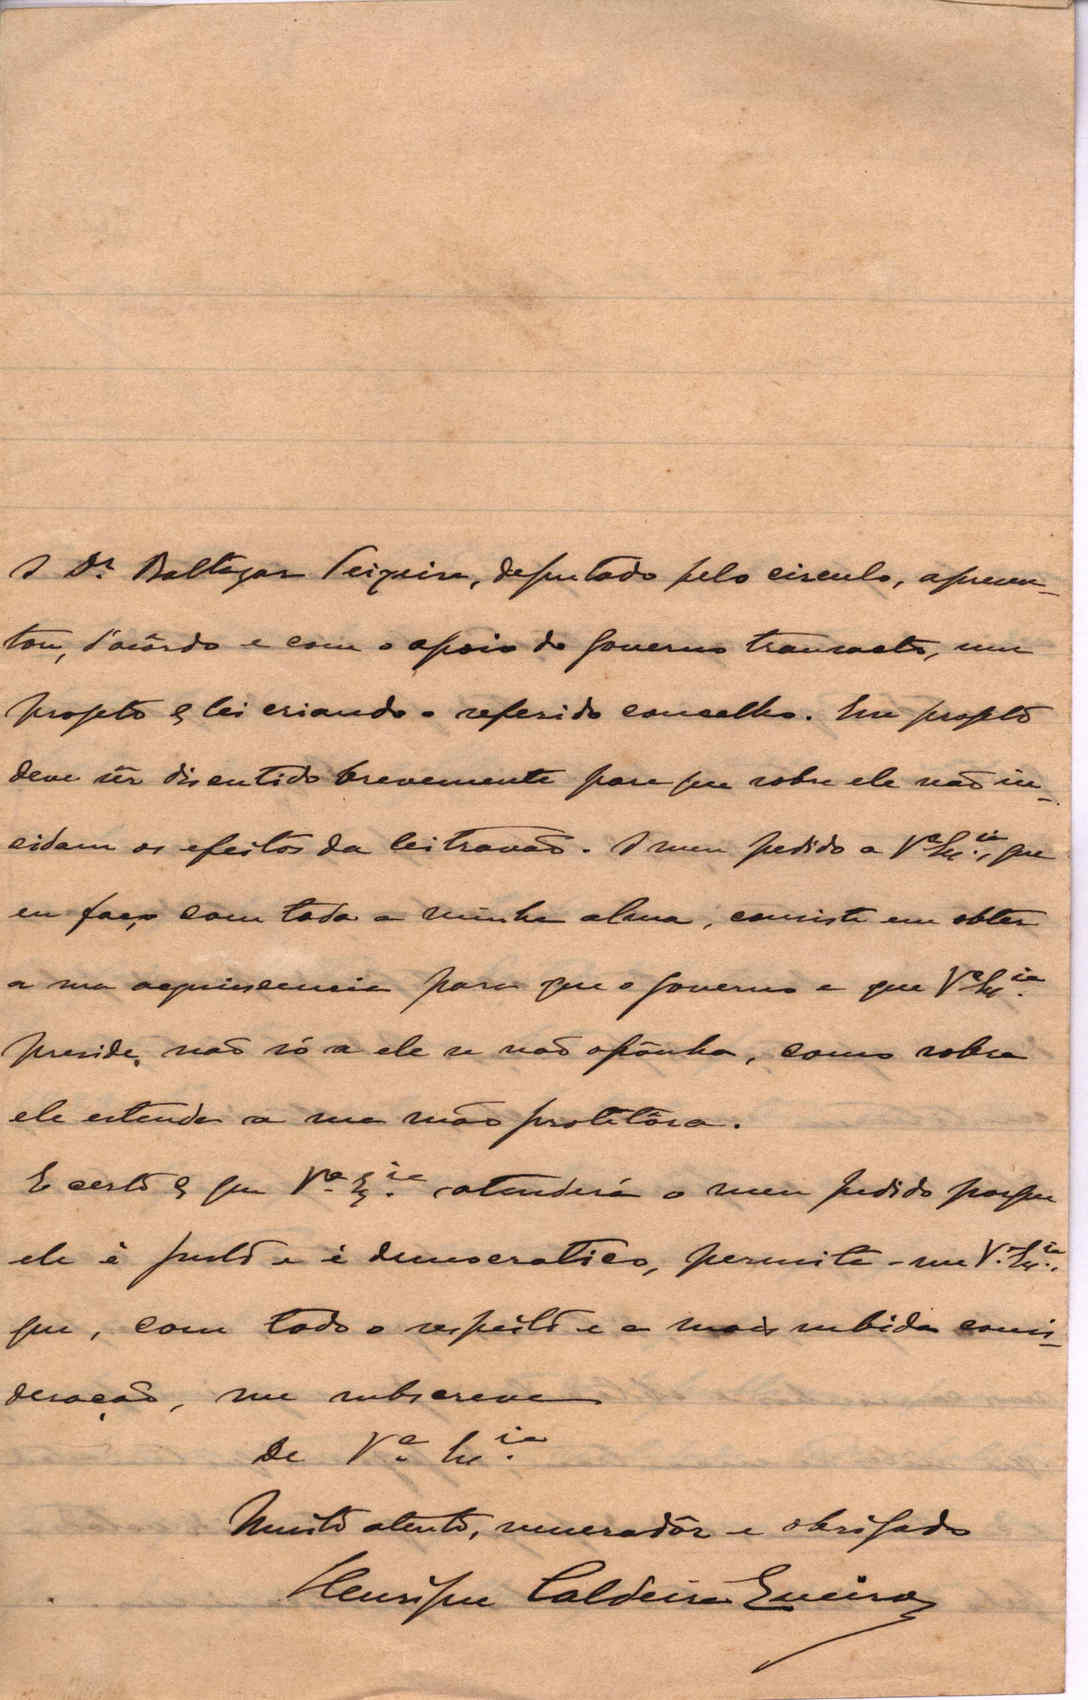 O Dr. Baltazar Teixeira, deputado pelo circulo, apresen-
tou, d'acôrdo e com o apoio do governo transacto, um
projeto de lei criando o referido concelho. Esse projeto
deve sêr discutido brevemente para que sobre ele não in-
cidam os efeitos da lei travão. O meu pedido a Vª Exᶜⁱᵃ, que
eu faço com toda a minha alma, consiste em obter
a sua aquiescencia para que o governo a que Vª Exᶜⁱᵃ
preside, não só a ele se não opônha, como sobre
ele estenda a sua mão protetôra.
E certo de que Vª Exᶜⁱᵃ atenderá o meu pedido porque
ele é justo e é democratico, permita-me Vª Exᶜⁱᵃ,
que, com todo o respeito e a mais subida consi-
deração, me subscreva
De Vª Exᶜⁱᵃ
Muito atento, veneradôr e obrigado
Henrique Caldeira Queiroz